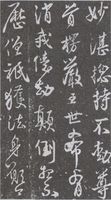 妙湛總持不動尊
首楞嚴王世希有
消我億劫顛倒想不
歷僧祇獲法身願